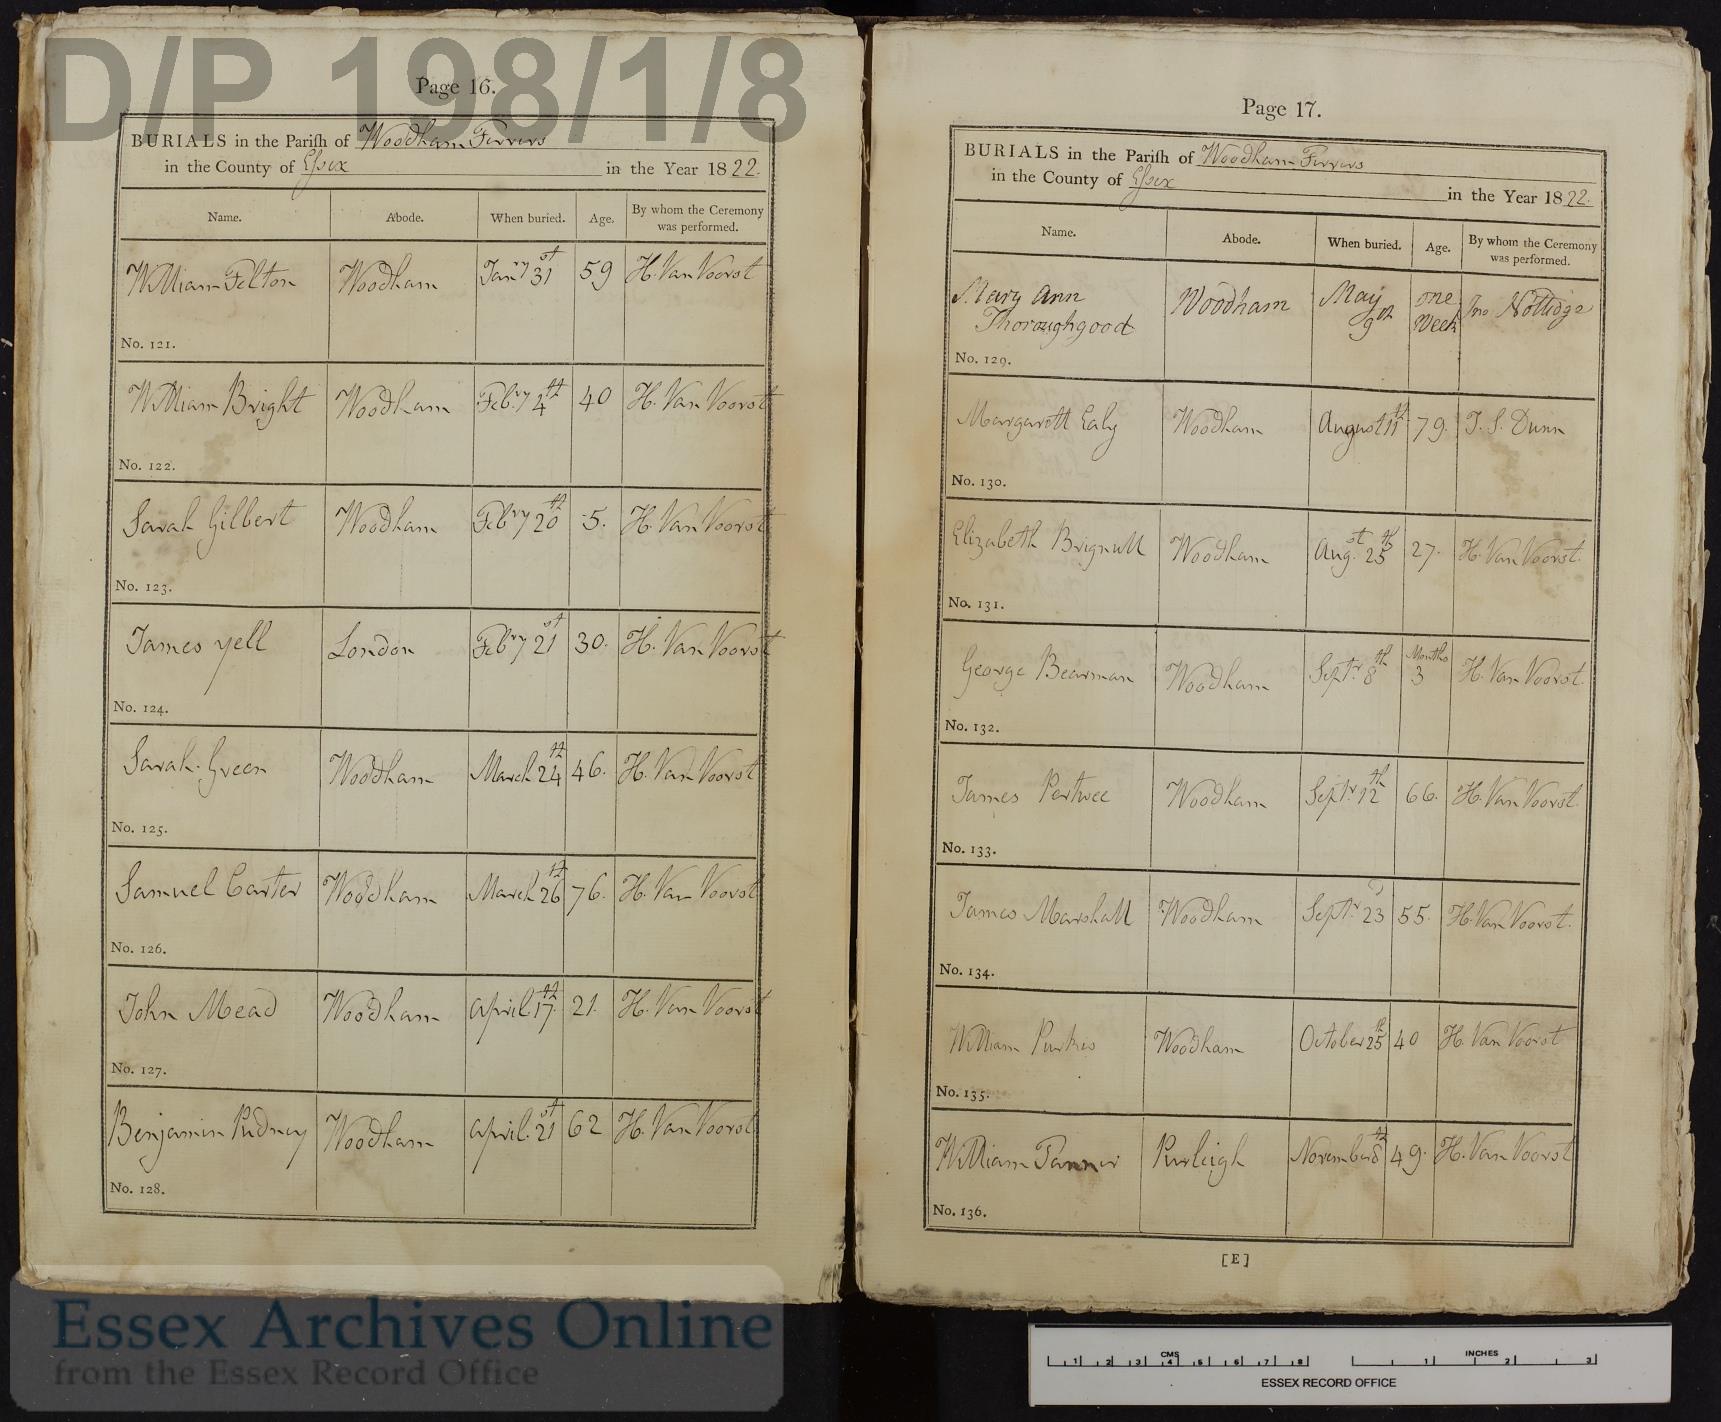 D/P 198/1/8
Page 16.
BURIALS in the Pariſh of Woodham Ferrers
in the County of Eſsex in the Year 1822.
Name. Abode. When buried. Age. By whom the Ceremony was performed.
William Felton Woodham Janry 31st 59 H. Van Voorst
No. 121.
William Bright Woodham Febry 4th 40 H. Van Voorst
No. 122.
Sarah Gilbert Woodham Febry 20th 5. H. Van Voorst
No. 123.
James Yell London Febry 21st 30. H. Van Voorst
No. 124.
Sarah Green Woodham March 24th 46. H. Van Voorst
No. 125.
Samuel Carter Woodham March 26th 76. H. Van Voorst
No. 126.
John Mead Woodham April 17th 21. H. Van Voorst
No. 127.
Benjamin Pudney Woodham April 21st 62 H. Van Voorst
No. 128.
Page 17.
BURIALS in the Pariſh of Woodham Ferrers
in the County of Eſsex in the Year 1822.
Name. Abode. When buried. Age. By whom the Ceremony was performed.
Mary Ann Thoroughgood Woodham May 9th one Week Jno Nottidge
No. 129.
Margarett Ealy Woodham August 11th 79. J. S. Dunn
No. 130.
Elizabeth Brignull Woodham Augst 25th 27. H. Van Voorst.
No. 131.
George Bearman Woodham Septr 8th Months 3 H. Van Voorst.
No. 132.
James Pertwee Woodham Septr 12th 66. H. Van Voorst.
No. 133.
James Marshall Woodham Septr 23 55. H. Van Voorst.
No. 134.
William Purkis Woodham October 25th 40 H. Van Voorst
No. 135.
William Tanner Purleigh November 8th 49. H. Van Voorst
No. 136.
[E]
Essex Archives Online
from the Essex Record Office
CMS 1 2 3 4 5 6 7 8
INCHES 1 2 3
ESSEX RECORD OFFICE